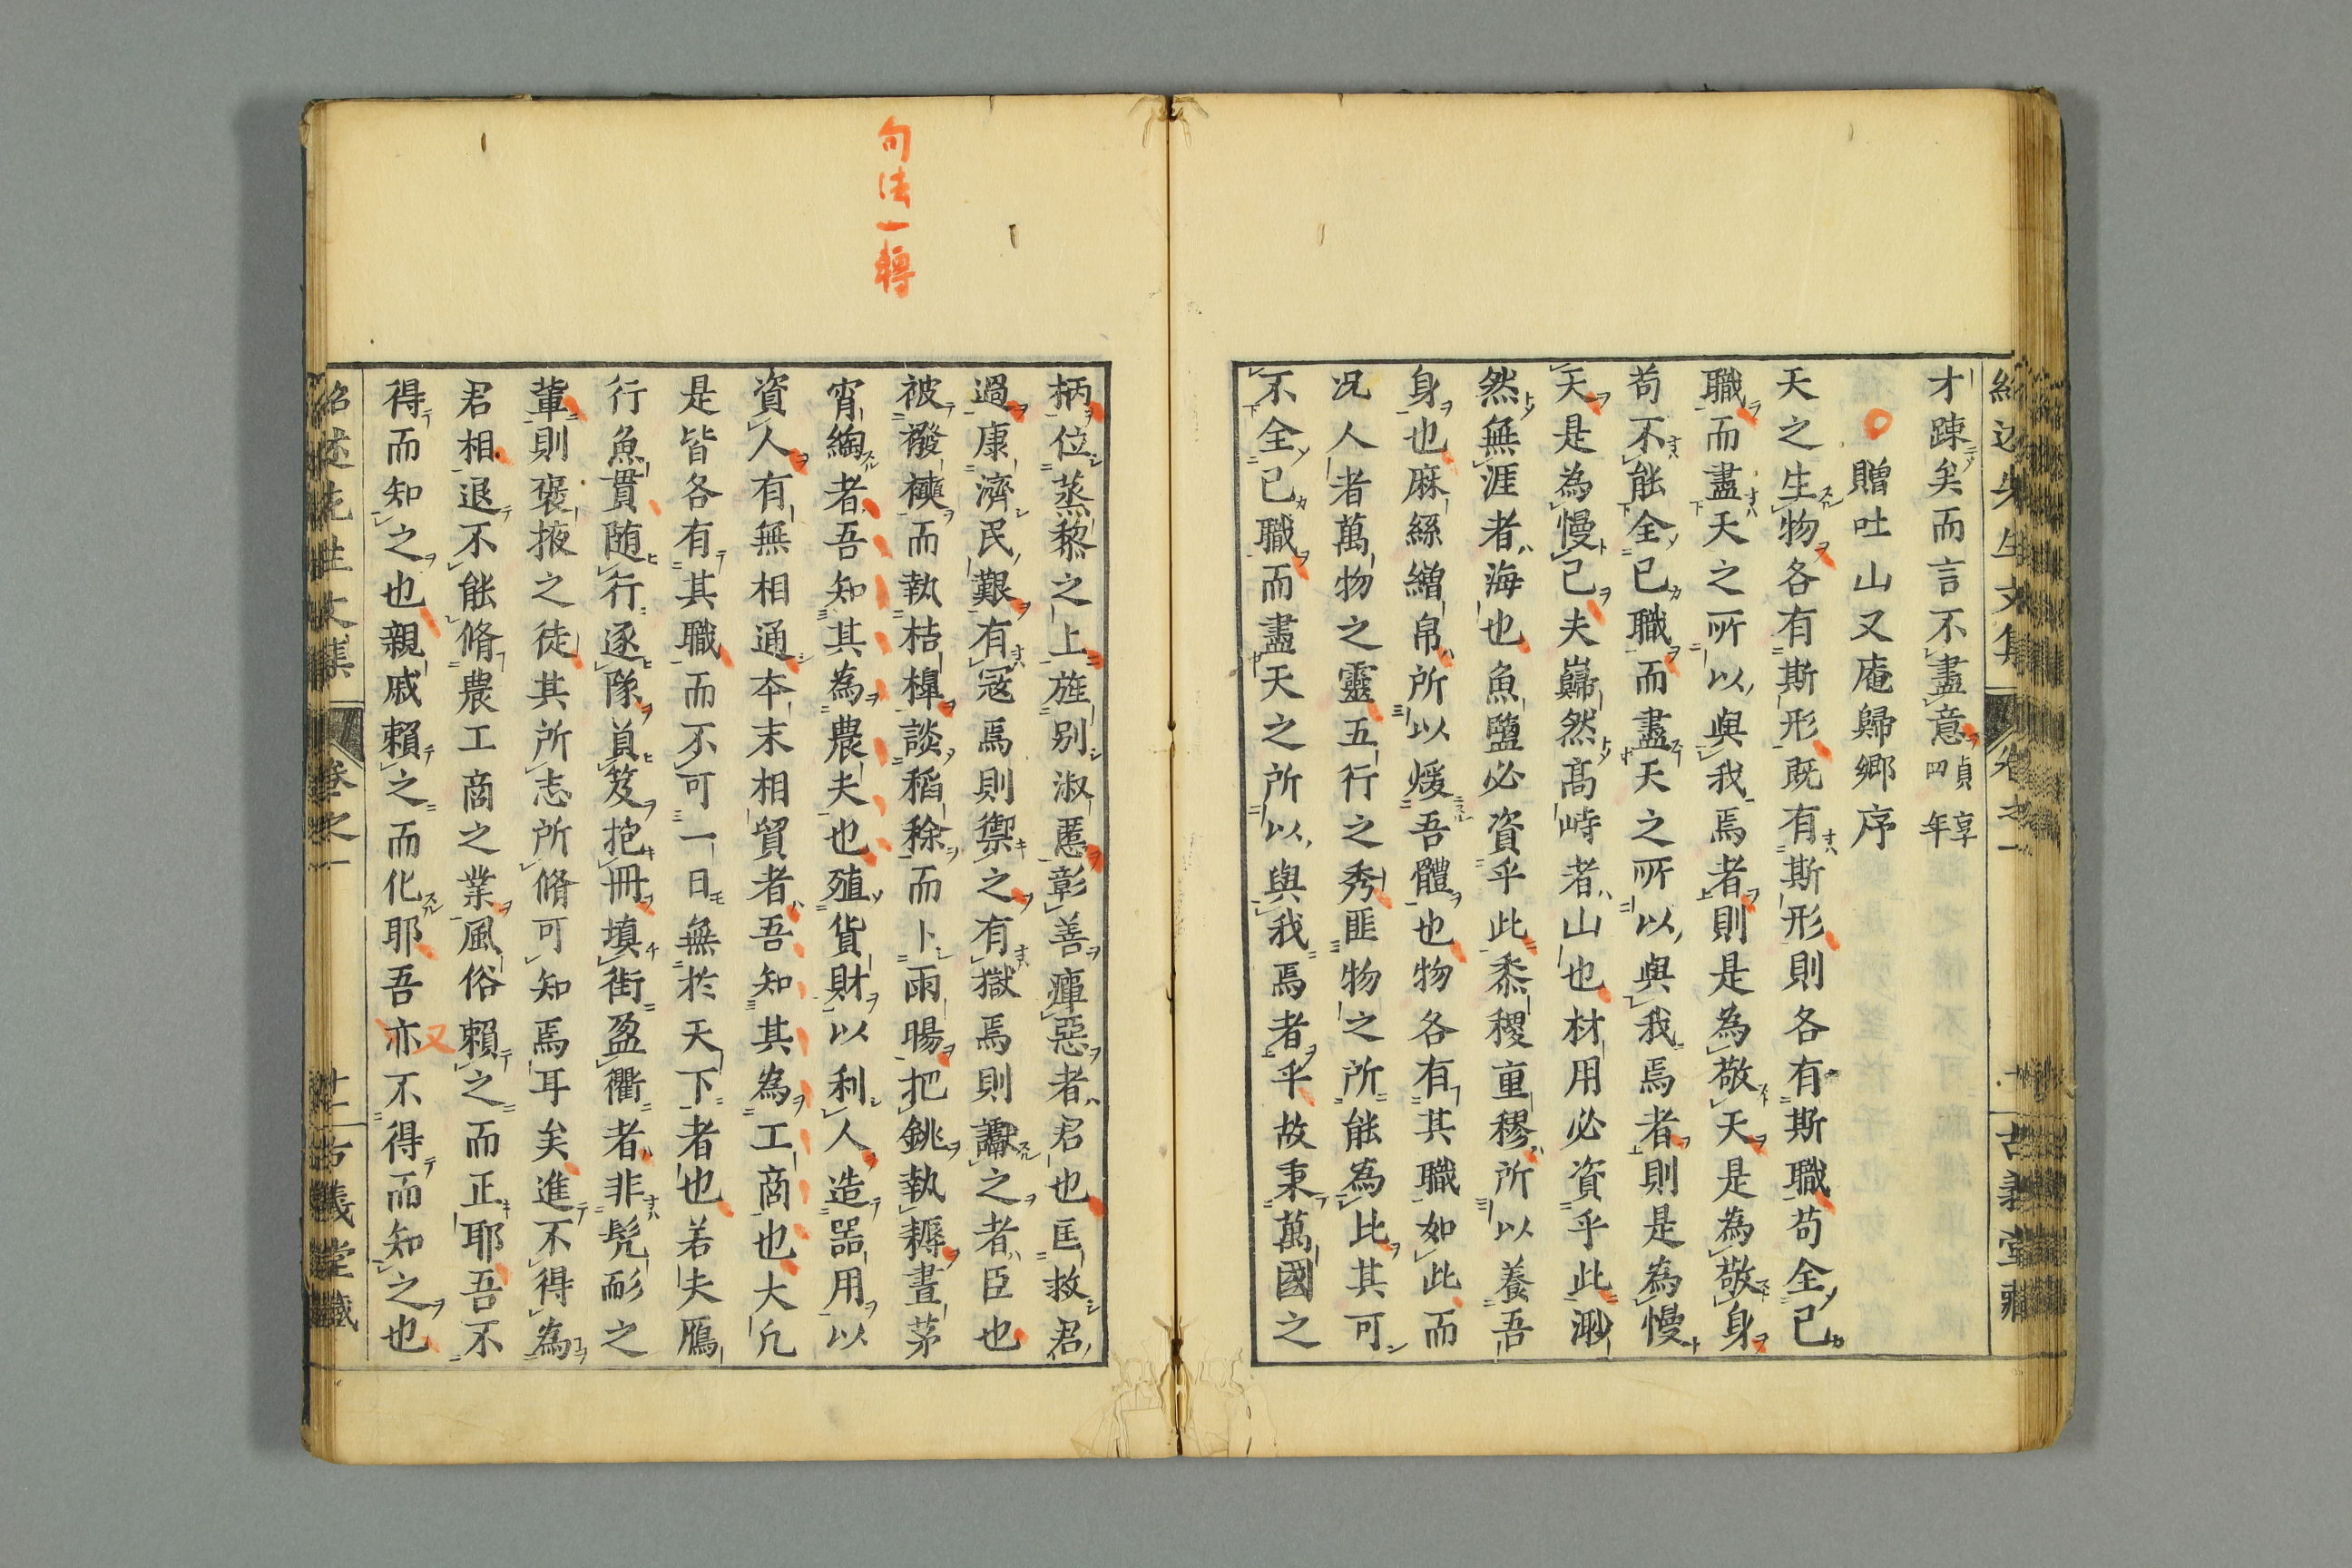 才踈矣而言不盡意貞享四年
贈吐山又庵歸鄉序
天之生物各有斯形既有斯形則各有斯職苟全己
職而盡天之所以與我焉者則是為敬天是為敬身
苟不能全己職而盡天之所以與我焉者則是為慢
天是為慢己夫巋然高峙者山也材用必資乎此渺
然無涯者海也魚鹽必資乎此黍稷重穋所以養吾
身也麻絲繒帛所以煖吾體也物各有其職如此而
况人者萬物之靈五行之秀匪物之所能為比其可
不全己職而盡天之所以與我焉者乎故秉萬國之
句法一轉
柄位蒸黎之上旌別淑慝彰善癉惡者君也匡救君
過康濟民艱有寇焉則禦之有獄焉則讞之者臣也
被襏襫而執桔槹談稻稌而卜雨暘把銚執耨晝茅
宵綯者吾知其為農夫也殖貨財以利人造噐用以
資人有無相通本末相貿者吾知其為工商也大凢
是皆各有其職而不可一日無於天下者也若夫鴈
行魚貫随行逐隊負笈抱冊填街盈衢者非髠耏之
輩則褒掖之徒其所志所脩可知焉耳矣進不得為
君相退不能脩農工商之業風俗賴之而正耶吾不
得而知之也親戚賴之而化耶吾亦不得而知之也
又
紹述先生文集 卷之一 古義堂藏